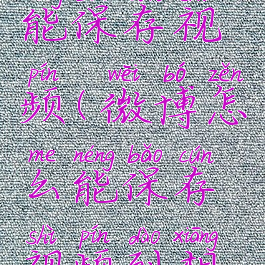 能保存视
pín wēi bó zěn
频(微博怎
me néng bǎo cún
么能保存
shì pín dào xiāng
视频到相